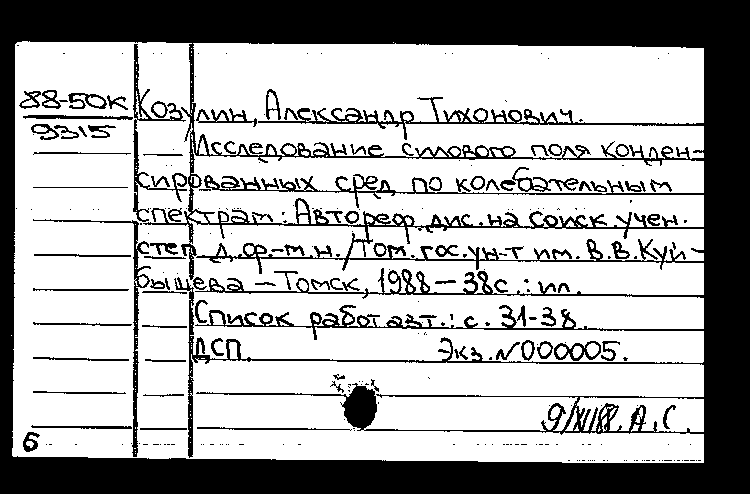 88-50К Козулин, Александр Тихонович.
9315
Исследование силового поля конден-
сированных сред по колебательным
спектрам: Автореф. дис. на соиск. учен.
степ. д. ф.-м. н. / Том. гос. ун-т им. В.В. Куй-
бышева – Томск, 1988 – 38с.: ил.
Список работ авт.: с. 31-38.
ДСП. Экз. №000005.
9/XI 88. А.С.
б